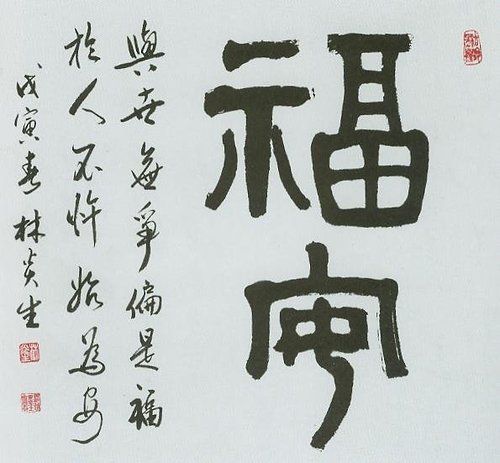 福安
與世無爭偏是福
於人不忤始為安
戊寅春 林炎生